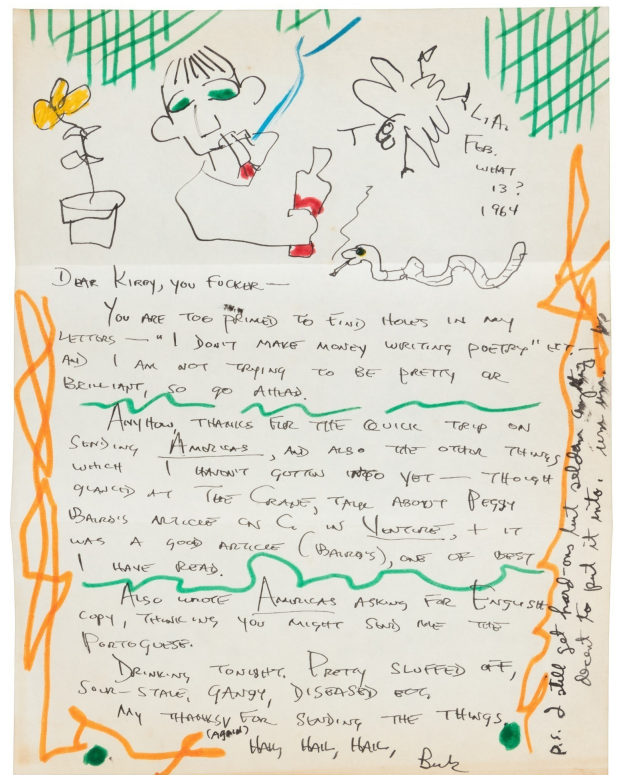 L.A.
FEB.
WHAT
13?
1964
DEAR KIRBY, YOU FUCKER —
YOU ARE TOO PRIMED TO FIND HOLES IN MY
LETTERS — "I DON'T MAKE MONEY WRITING POETRY"
AND I AM NOT TRYING TO BE PRETTY OR
BRILLIANT, SO GO AHEAD.
ANYHOW, THANKS FOR THE QUICK TRIP ON
SENDING AMERICAS, AND ALSO THE OTHER THINGS
WHICH I HAVEN'T GOTTEN INTO YET — THOUGH
GLANCED AT THE CRANE, TALK ABOUT PEGGY
BAIRD'S ARTICLE ON C. IN VENTURE, + IT
WAS A GOOD ARTICLE (BAIRD'S), ONE OF BEST
I HAVE READ.
ALSO WROTE AMERICAS ASKING FOR ENGLISH
COPY, THINKING YOU MIGHT SEND ME THE
PORTOGUESE.
DRINKING TONIGHT. PRETTY SLUFFED OFF,
SOUR-STALE, GANGY, DISEASED ECT.
MY THANKS FOR SENDING THE THINGS.
(AGAIN)
HAIL, HAIL, HAIL,
Buk
p.s. I still get hard-ons but seldom anything
decent to put it into.